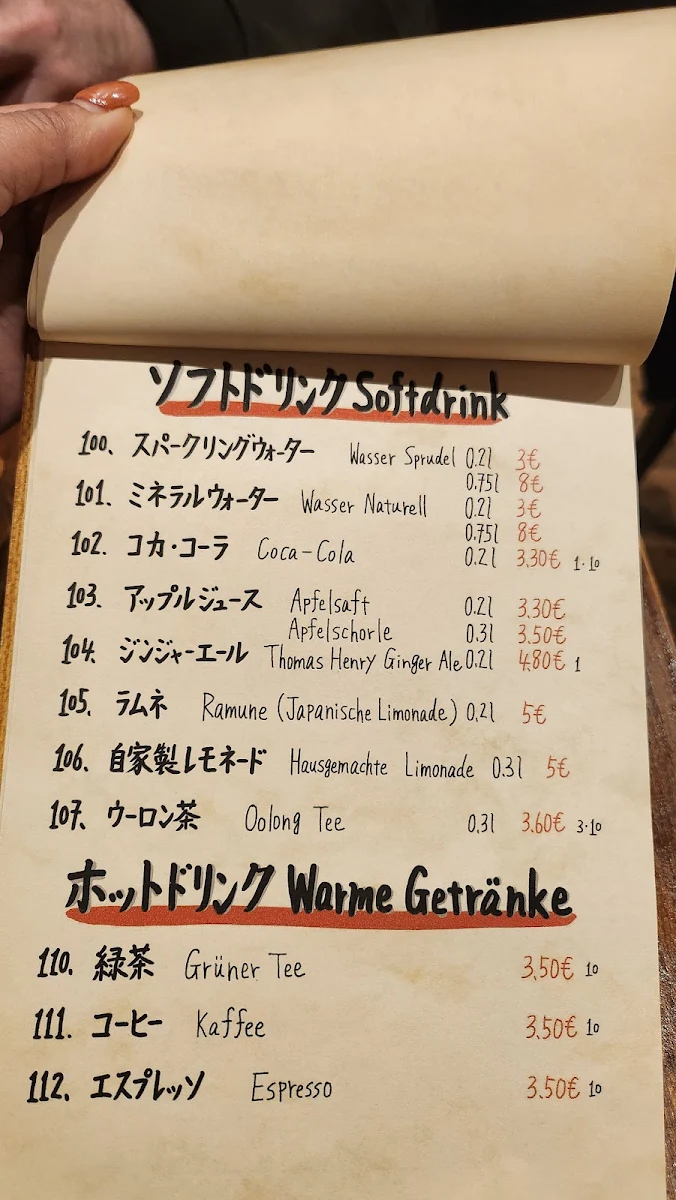 ソフトドリンク Softdrink
100. スパークリングウォーター Wasser Sprudel 0.2l 3€
0.75l 8€
101. ミネラルウォーター Wasser Naturell 0.2l 3€
0.75l 8€
102. コカ・コーラ Coca-Cola 0.2l 3.30€ 1·10
103. アップルジュース Apfelsaft 0.2l 3.30€
Apfelschorle 0.3l 3.50€
104. ジンジャーエール Thomas Henry Ginger Ale 0.2l 4.80€ 1
105. ラムネ Ramune (Japanische Limonade) 0.2l 5€
106. 自家製レモネード Hausgemachte Limonade 0.3l 5€
107. ウーロン茶 Oolong Tee 0.3l 3.60€ 3·10
ホットドリンク Warme Getränke
110. 緑茶 Grüner Tee 3.50€ 10
111. コーヒー Kaffee 3.50€ 10
112. エスプレッソ Espresso 3.50€ 10